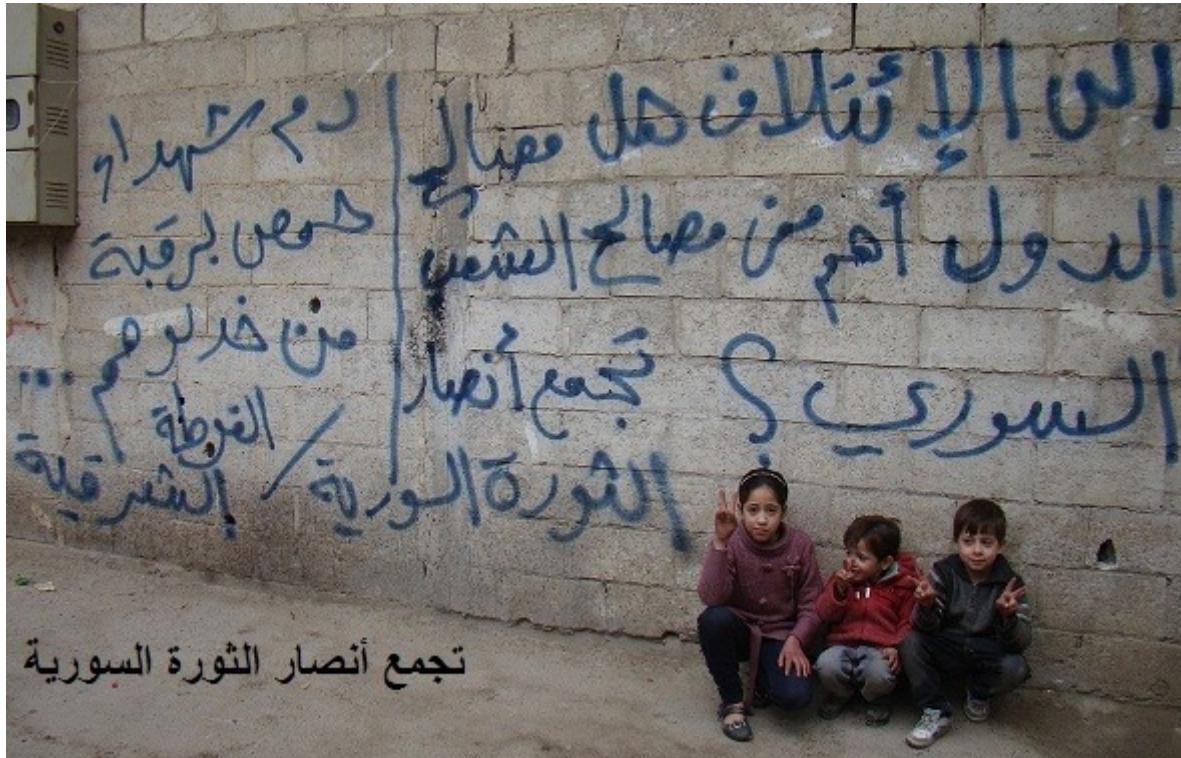 الى الإئتلاف هل مصالح
الدول أهم من مصالح الشعب
السوري ؟
تجمع أنصار
الثورة السورية / الغوطة الشرقية
دم شهداء
حمص برقبة
من خذلوهم ...
تجمع أنصار الثورة السورية